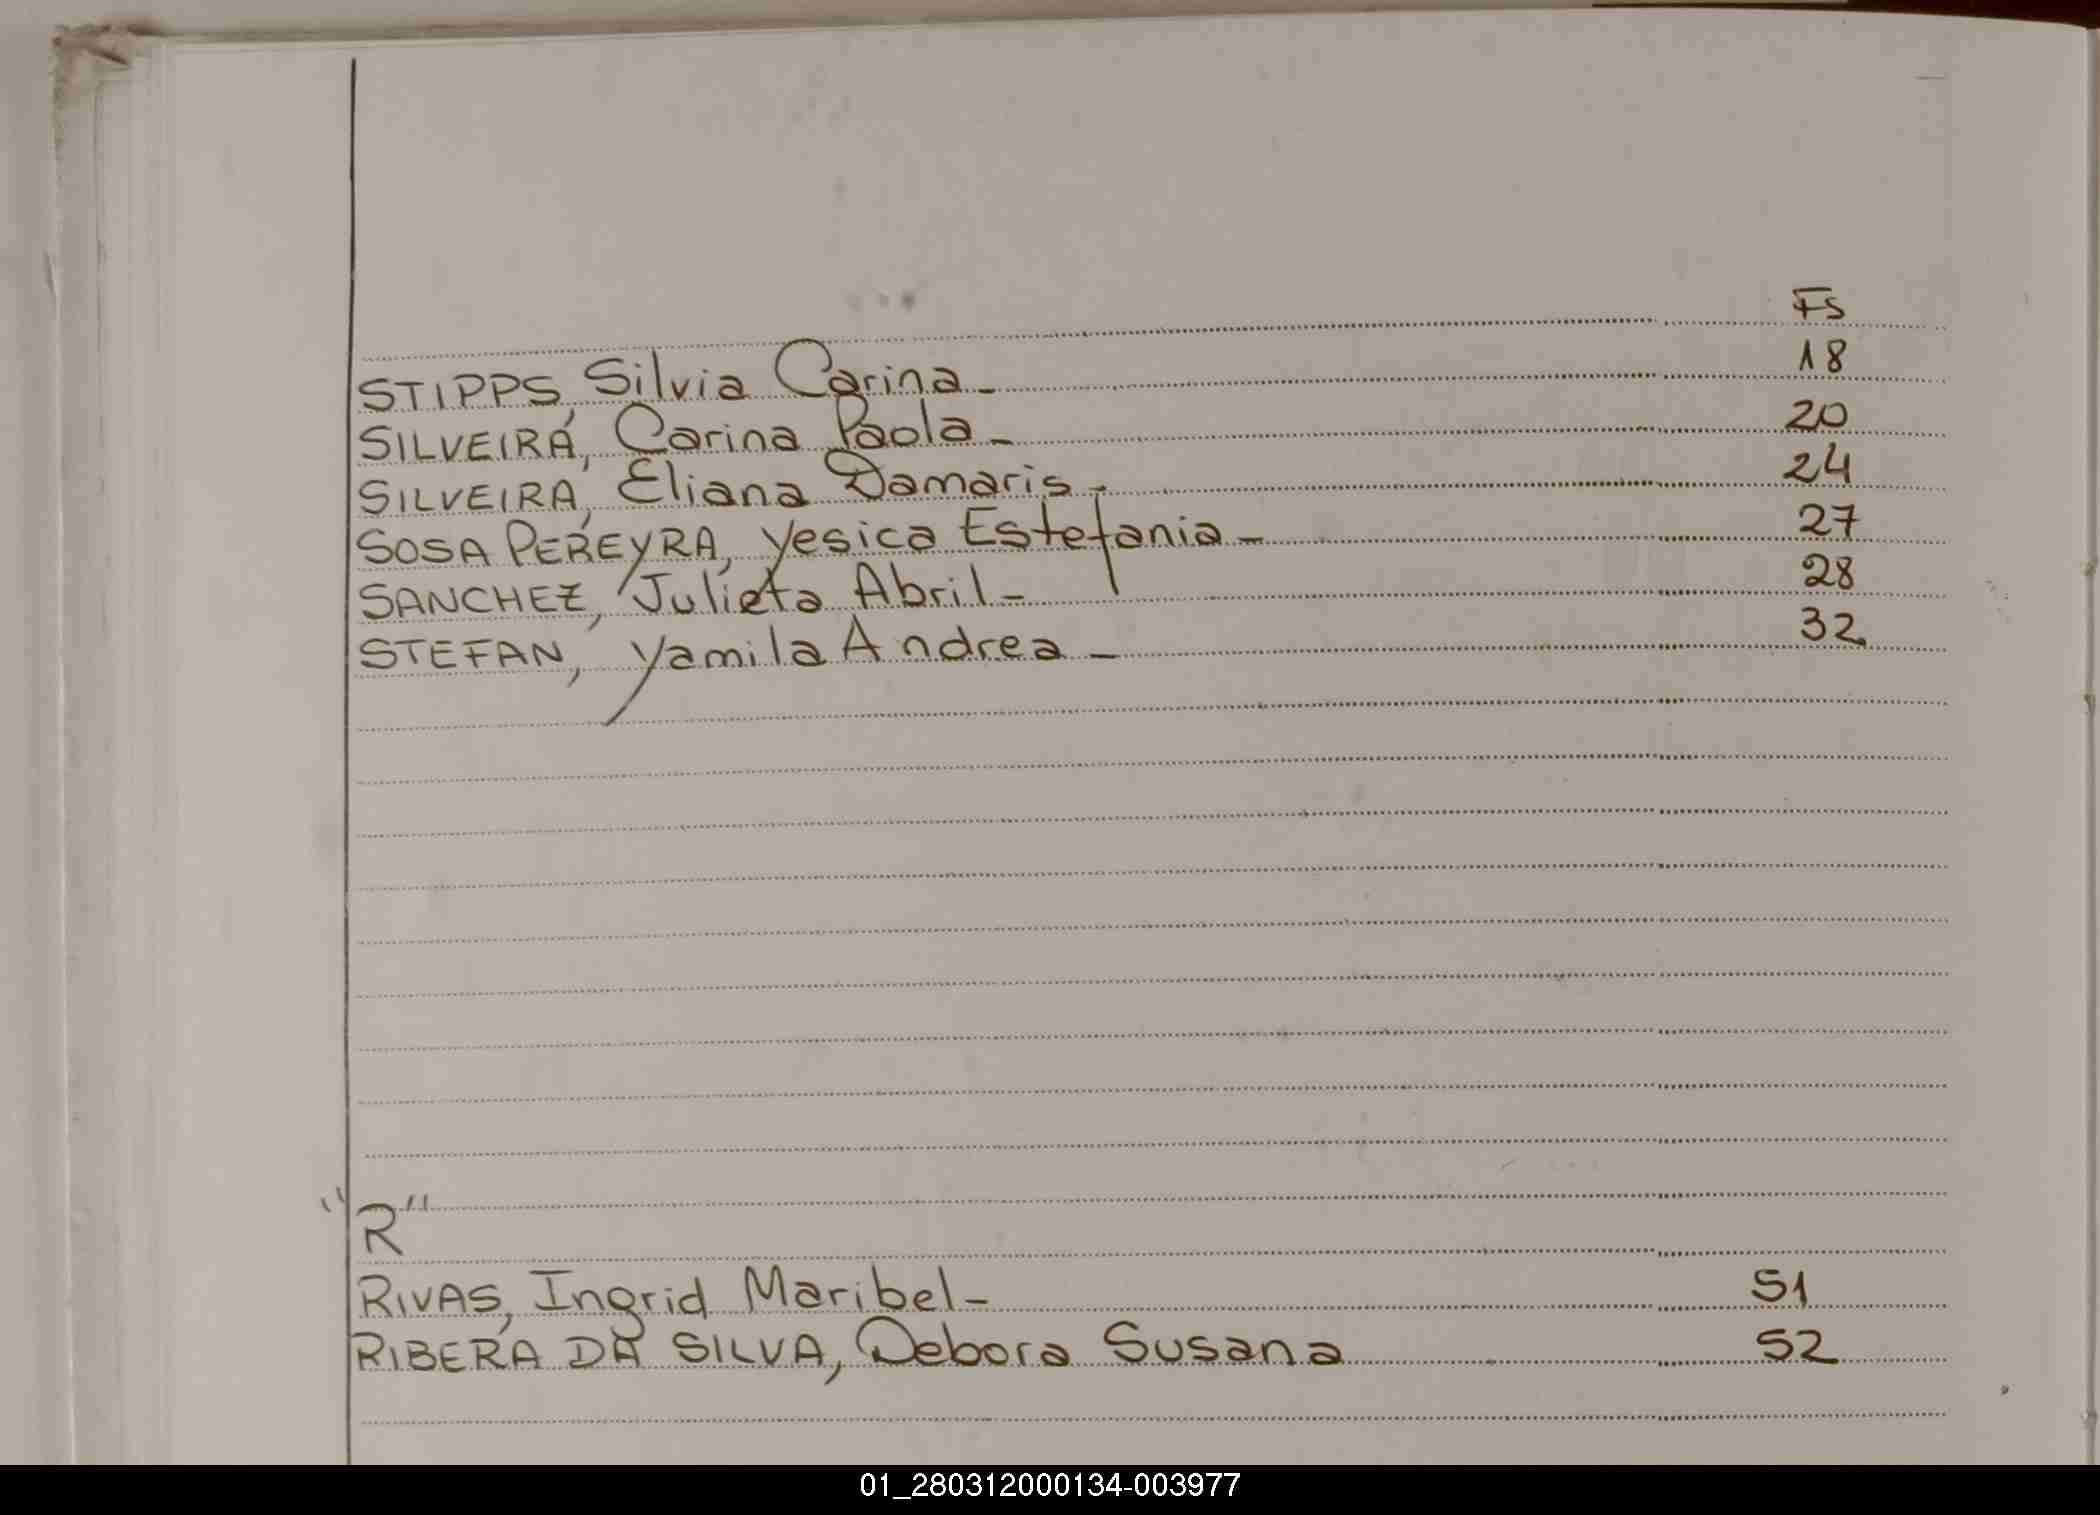 Fs
STIPPS, Silvia Carina- 18
SILVEIRA, Carina Paola- 20
SILVEIRA, Eliana Damaris- 24
SOSA PEREYRA, Yesica Estefania- 27
SANCHEZ, Julieta Abril- 28
STEFAN, Yamila Andrea- 32
"R"
RIVAS, Ingrid Maribel- 51
RIBERA DA SILVA, Debora Susana 52
01_280312000134-003977